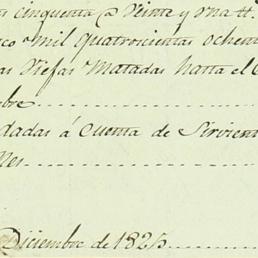 cinquenta a Veinte y una tt.
mil quatrocientas ochen
Viejas Matadas hasta el
bre
dadas á Cuenta de Sirvien
nes
Diciembre de 1825